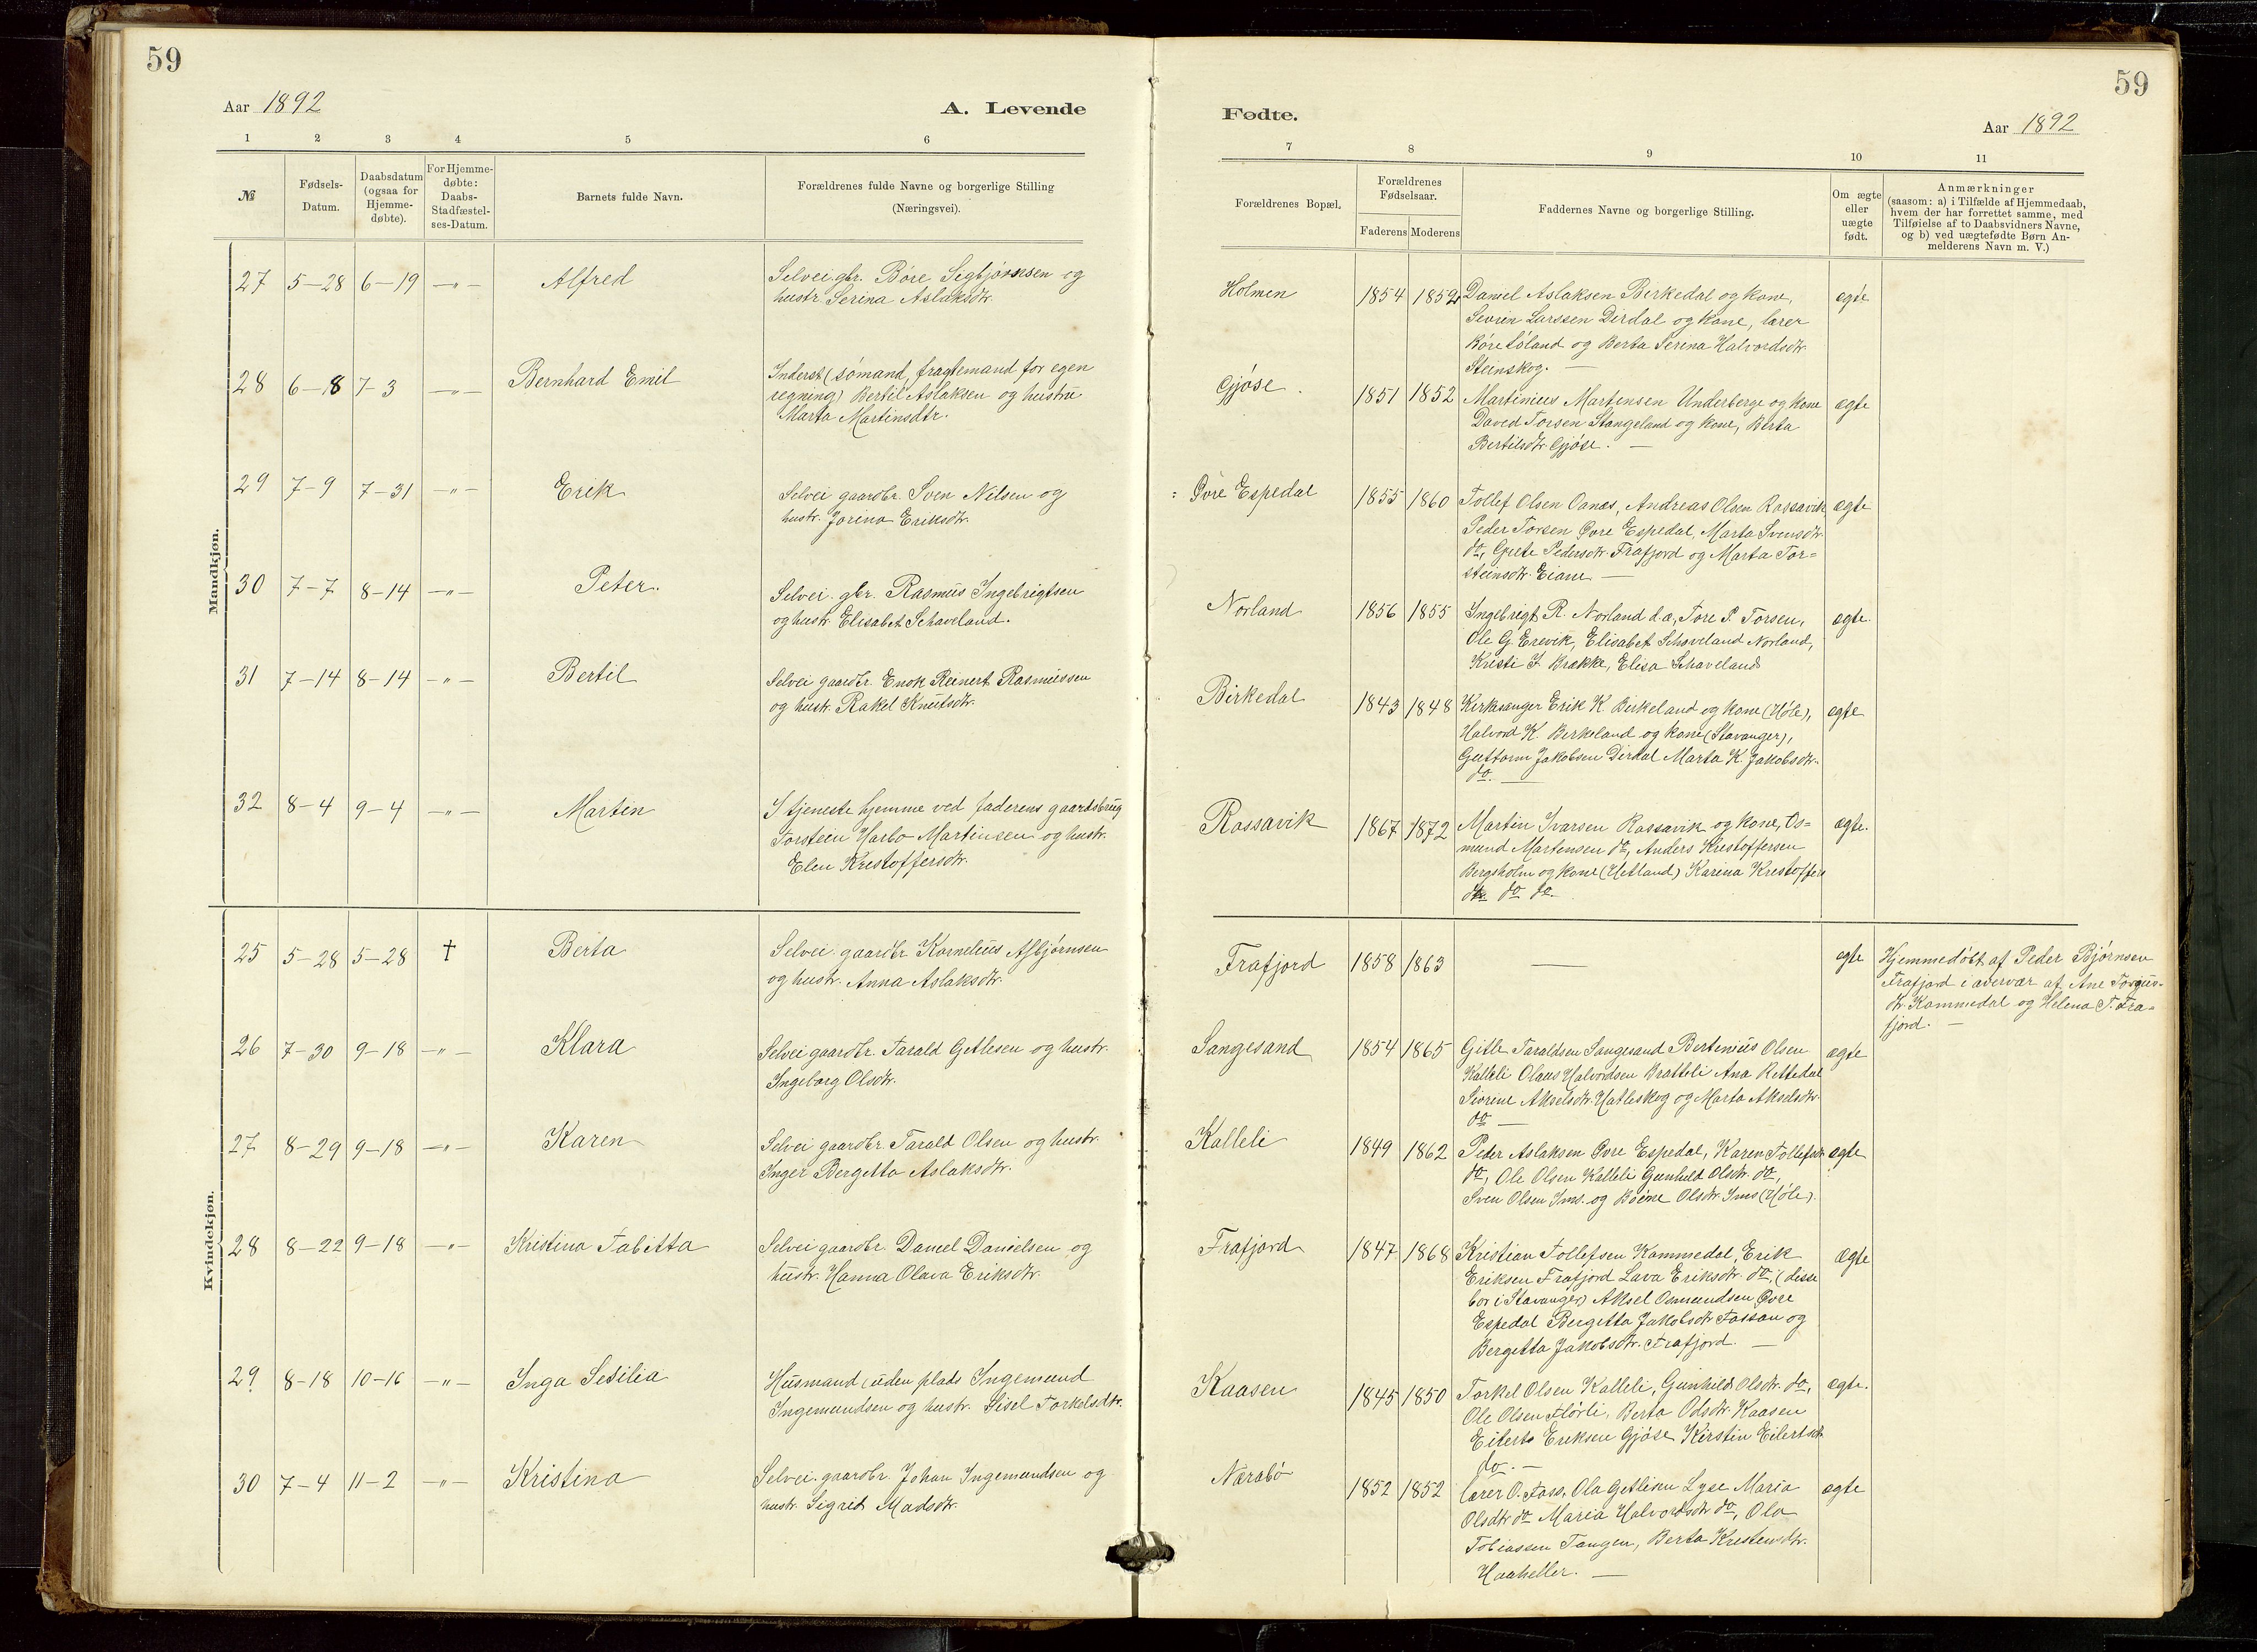 59
Aar 1892
A. Levende
1 2 3 4 5 6
№
Fødsels-Datum.
Daabsdatum (ogsaa for Hjemme-døbte).
For Hjemme-døbte: Daabs-Stadfæstel-ses-Datum.
Barnets fulde Navn.
Forældrenes fulde Navne og borgerlige Stilling
(Næringsvei).
Mandkjøn.
27 5-28 6-19 -„- Alfred Selvei. gbr. Bore Sigbjørnsen og
hustr. Serina Aslaksdtr.
28 6-18 7-3 -„- Bernhard Emil Inderst (sømand, fragtemand for egen
regning) Bertil Aslaksen og hustru
Marta Martinsdtr.
29 7-9 7-31 -„- Erik Selvei gaardbr. Sven Nilsen og
hustr. Jorina Eriksdtr.
30 7-7 8-14 -„- Peter. Selvei. gbr. Rasmus Ingebrigtsen
og hustr. Elisabet Schaveland.
31 7-14 8-14 -„- Bertil Selvei gaardbr. Enok Reinert Rasmussen
og hustr. Rakel Knutsdtr.
32 8-4 9-4 -„- Martin I tjeneste hjemme ved faderens gaardsbrug
Torstein Harbo Martinsen og hustr.
Elen Kristoffersdtr.
Kvindekjøn.
25 5-28 5-28 † Berta Selvei. gaardbr. Kornelius Asbjørnsen
og hustr. Anna Aslaksdtr.
26 7-30 9-18 -„- Klara Selvei gaardbr. Tarald Getlesen og hustr.
Ingeborg Olsdtr.
27 8-29 9-18 -„- Karen Selvei gaardbr. Tarald Olsen og hustr.
Inger Bergetta Aslaksdtr.
28 8-22 9-18 -„- Kristina Tabitta Selvei gaardbr. Daniel Danielsen og
hustr. Hanna Olava Eriksdtr.
29 8-18 10-16 -„- Inga Sesilia Husmand uden plads Ingemund
Ingemundsen og hustr. Sisel Torkelsdtr.
30 7-4 11-2 -„- Kristina Selvei. gaardbr. Johan Ingemundsen og
hustr. Sigrid Madsdtr.
59
Fødte.
Aar 1892
7 8 9 10 11
Forældrenes Bopæl.
Forældrenes Fødselsaar.
Faderens Moderens
Faddernes Navne og borgerlige Stilling.
Om ægte eller uægte født.
Anmærkninger
(saasom: a) i Tilfælde af Hjemmedaab,
hvem der har forrettet samme, med
Tilføielse af to Daabsvidners Navne,
og b) ved uægtefødte Børn An-
melderens Navn m. V.)
Holmen 1854 1852 Daniel Aslaksen Birkedal og kone, ægte
Sevrin Larssen Dirdal og kone, lærer
Bore Löland og Berta Serena Halvordsdtr.
Steinskog. —
Gjøse. 1851 1852 Martinius Martensen Underberge og kone ægte
David Torsen Stangeland og kone, Berta
Bertilsdtr. Gjøse. —
Øvre Espedal 1855 1860 Tollef Olsen Oanæs, Andreas Olsen Rossavik ægte
Peder Torsen Øvre Espedal, Marta Svensdtr.
do, Grete Pedersdtr. Frafjord og Marta Tor=
steinsdtr. Eiane —
Norland 1856 1855 Ingebrigt R. Norland d.æ, Tore P. Torsen, ægte.
Ole G. Erevik, Elisabet Schaveland Norland,
Kristi I. Brække, Elisa Schaveland
Birkedal 1843 1848 Kirkesanger Erik K. Birkeland og kone (Høle), ægte
Halvord K. Birkeland og kone (Stavanger),
Guttorm Jakobsen Dirdal Marta K. Jakobsdtr.
do. —
Rossavik 1867 1872 Martin Ivarsen Rossavik og kone, Os= ægte.
mund Martensen do, Anders Kristoffersen
Bergsholm og kone (Hetland) Karina Kristoffers
dtr do do.
Frafjord 1858 1863 — ægte Hjemmedøbt af Peder Bjørnsen
Frafjord i overvær af Ane Torgus-
dtr. Kommedal og Helena T. Fra=
fjord. —
Songesand 1854 1865 Gitle Taraldsen Songesand Bertenius Olsen ægte
Kalleli Olaus Halvordsen Bratteli Ana Rettedal
Sivrine Akselsdtr. Hatleskog og Marta Akselsdtr.
do —
Kalleli 1849 1862 Peder Aslaksen Øvre Espedal, Karen Tollefsdtr ægte
do, Ole Olsen Kalleli Gunhild Olsdtr. do,
Sven Olsen Ims. og Olsdtr. Ims (Høle).
Frafjord 1847 1868 Kristian Tollefsen Kommedal, Erik ægte
Eriksen Frafjord Lava Eriksdtr. do, (disse
bor i Stavanger) Aksel Osmundsen Øvre
Espedal Bergetta Jakobsdtr. Fossan og
Bergetta Jakobsdtr. Frafjord. —
Kaasen 1845 1850 Torkel Olsen Kalleli, Gunhild Olsdtr. do, ægte.
Ole Olsen Flörli, Berta Olsdtr. Kaasen
Eilert Eriksen Gjøse Kirstin Eilertsdtr.
do. —
Nærabø 1852 1852 lærer O. Foss, Ola Getlesen Lyse Maria ægte
Olsdtr do Maria Halvordsdtr do, Ola
Tobiassen Tangen, Berta Kristensdtr.
Haaheller. —